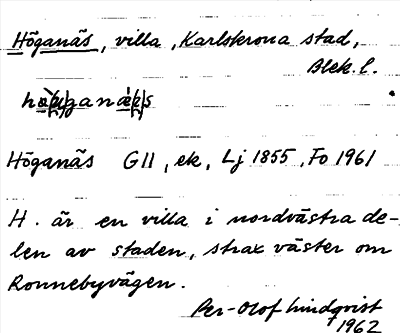 Höganäs, villa, Karlskrona stad,
Blek. l.
Höganäs GII, ek, Lj 1855, Fo 1961
H. är en villa i nordvästra de-
len av staden, strax väster om
Ronnebyvägen.
Per-Olof Lindqvist
1962